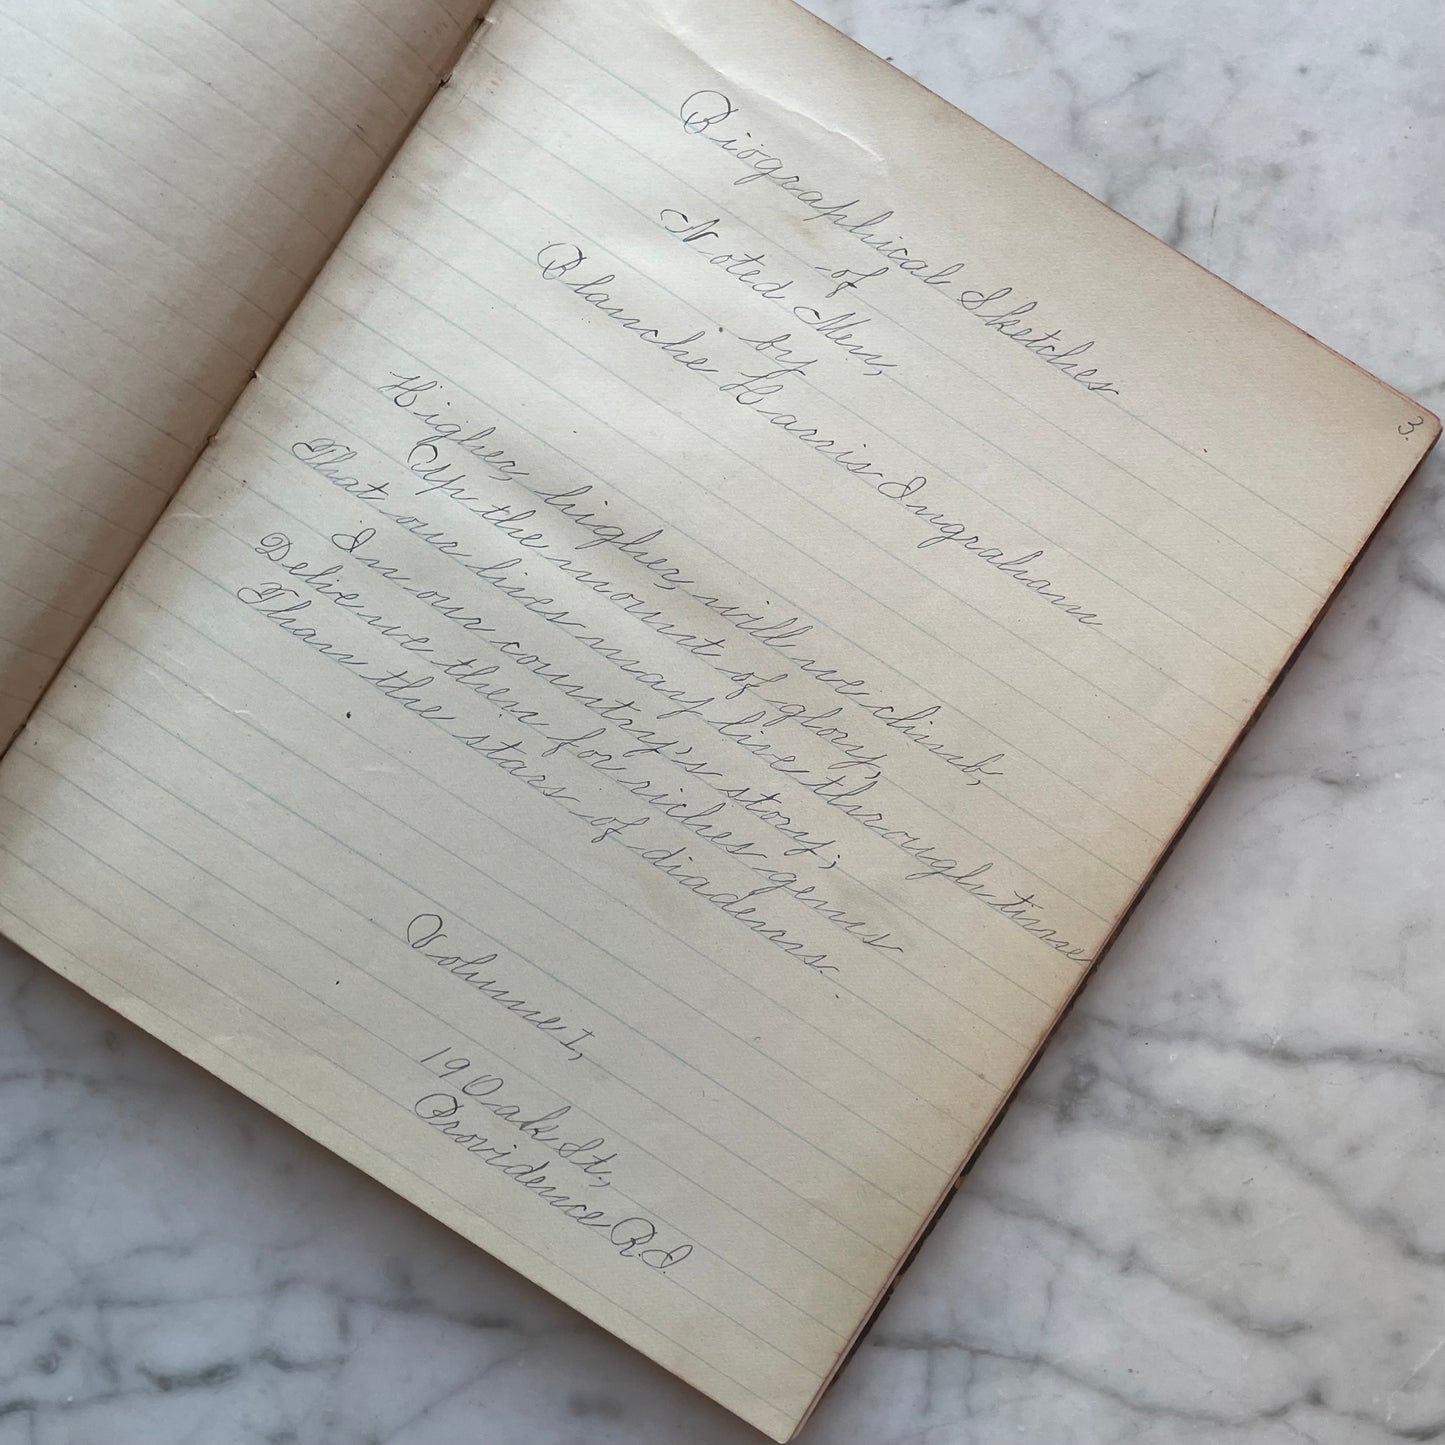 3.
Biographical Sketches
of
Noted Men,
by
Blanche Harris Ingraham
Higher, higher will we climb,
Up the mount of glory,
That our lives may live through time
In our country's story;
Delive we then for riches gems
Than the stars of diadems.
Volume I,
19 Oak St.,
Providence R.I.